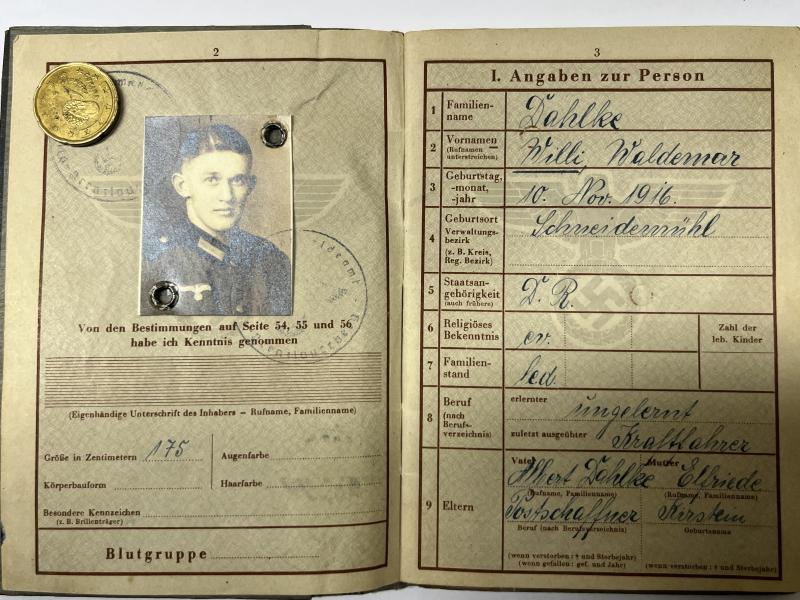 2
Von den Bestimmungen auf Seite 54, 55 und 56
habe ich Kenntnis genommen
(Eigenhändige Unterschrift des Inhabers – Rufname, Familienname)
Größe in Zentimetern 175 Augenfarbe
Körperbauform Haarfarbe
Besondere Kennzeichen
(z. B. Brillenträger)
Blutgruppe
3
I. Angaben zur Person
1 Familien-
name
Dahlke
2 Vornamen
(Rufnamen
unterstreichen)
Willi Waldemar
3 Geburtstag,
-monat,
-jahr
10. Nov. 1916.
4 Geburtsort
Verwaltungs-
bezirk
(z. B. Kreis,
Reg. Bezirk)
Schneidemühl
5 Staatsan-
gehörigkeit
(auch frühere)
D. R.
6 Religiöses
Bekenntnis
ev.
Zahl der
leb. Kinder
7 Familien-
stand
led.
8 Beruf
(nach
Berufs-
verzeichnis)
erlernter ungelernt
zuletzt ausgeübter Kraftfahrer
9 Eltern
Vater Mutter
Albert Dahlke Elfriede
(Rufname, Familienname) (Rufname, Familienname)
Postschaffner Kirstein
Beruf (nach Berufsverzeichnis) Geburtsname
(wenn verstorben: † und Sterbejahr)
(wenn gefallen: gef. und Jahr) (wenn verstorben: † und Sterbejahr)